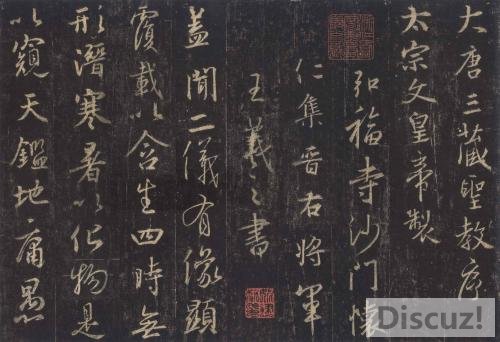 大唐三藏聖教序
太宗文皇帝製
弘福寺沙門懷
仁集晉右將軍
王羲之書
蓋聞二儀有像顯
覆載以含生四時無
形潛寒暑以化物是
以窺天鑑地庸愚
Discuz!